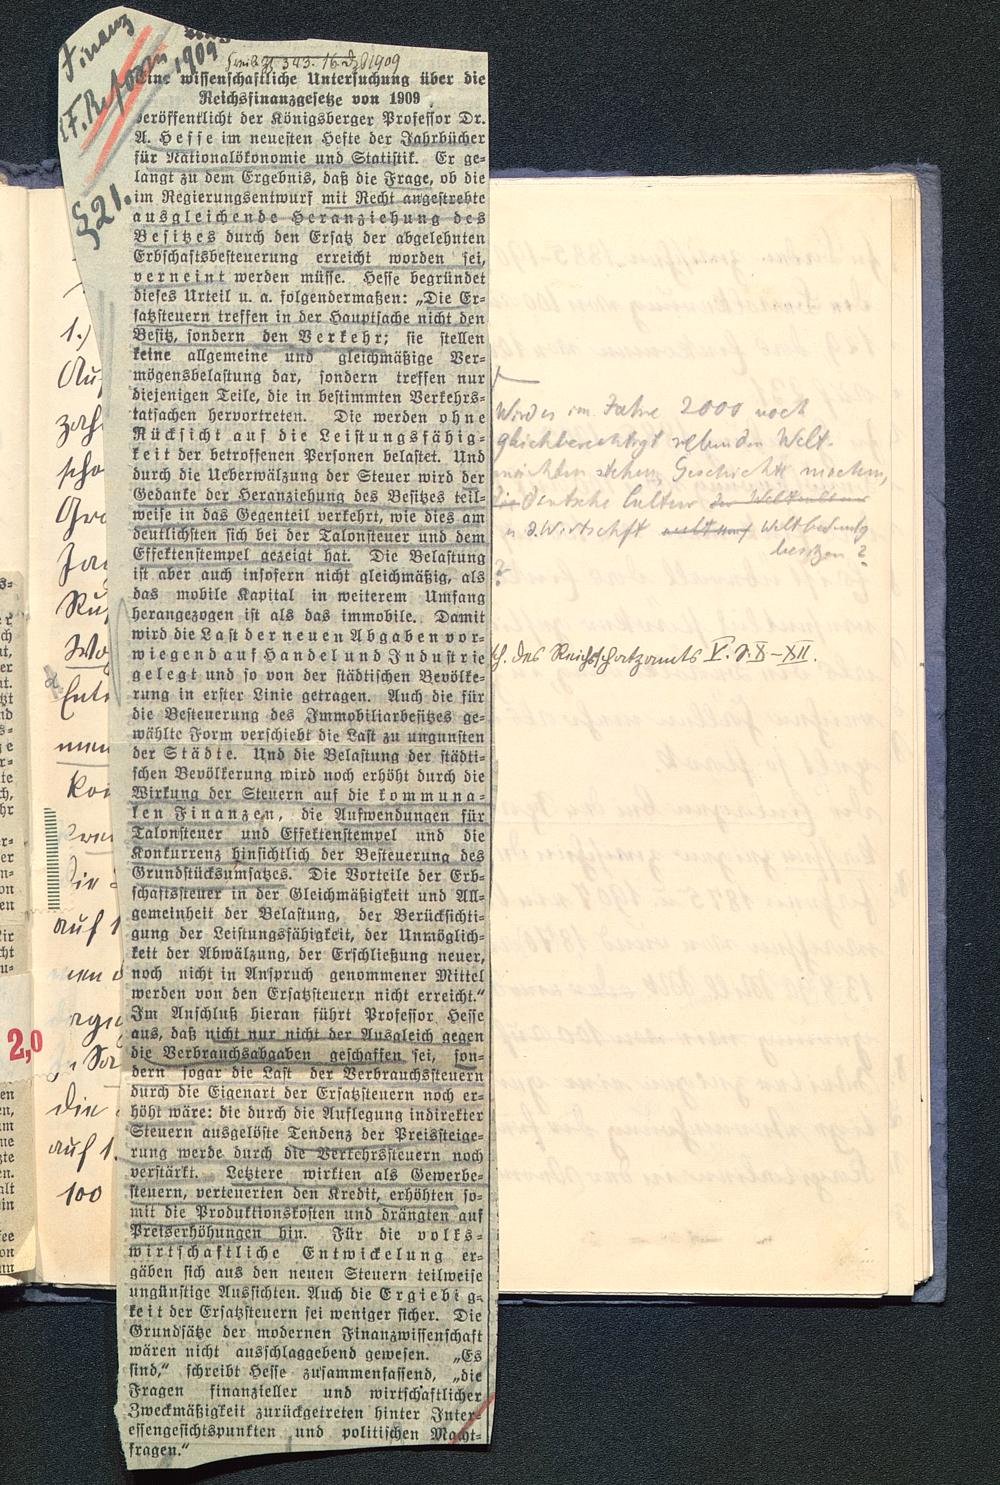 Finanz
Reform 1909
§21.
343. 16. 1909
Eine wissenschaftliche Untersuchung über die
Reichsfinanzgesetze von 1909
veröffentlicht der Königsberger Professor Dr.
A. Hesse im neuesten Hefte der Jahrbücher
für Nationalökonomie und Statistik. Er ge-
langt zu dem Ergebnis, daß die Frage, ob die
im Regierungsentwurf mit Recht angestrebte
ausgleichende Heranziehung des
Besitzes durch den Ersatz der abgelehnten
Erbschaftsbesteuerung erreicht worden sei,
verneint werden müsse. Hesse begründet
dieses Urteil u. a. folgendermaßen: „Die Er-
satzsteuern treffen in der Hauptsache nicht den
Besitz, sondern den Verkehr; sie stellen
keine allgemeine und gleichmäßige Ver-
mögensbelastung dar, sondern treffen nur
diejenigen Teile, die in bestimmten Verkehrs-
tatsachen hervortreten. Die werden ohne
Rücksicht auf die Leistungsfähig-
keit der betroffenen Personen belastet. Und
durch die Ueberwälzung der Steuer wird der
Gedanke der Heranziehung des Besitzes teil-
weise in das Gegenteil verkehrt, wie dies am
deutlichsten sich bei der Talonsteuer und dem
Effektenstempel gezeigt hat. Die Belastung
ist aber auch insofern nicht gleichmäßig, als
das mobile Kapital in weiterem Umfang
herangezogen ist als das immobile. Damit
wird die Last der neuen Abgaben vor-
wiegend auf Handel und Industrie
gelegt und so von der städtischen Bevölke-
rung in erster Linie getragen. Auch die für
die Besteuerung des Immobiliarbesitzes ge-
wählte Form verschiebt die Last zu ungunsten
der Städte. Und die Belastung der städti-
schen Bevölkerung wird noch erhöht durch die
Wirkung der Steuern auf die kommuna-
len Finanzen, die Aufwendungen für
Talonsteuer und Effektenstempel und die
Konkurrenz hinsichtlich der Besteuerung des
Grundstücksumsatzes. Die Vorteile der Erb-
schaftssteuer in der Gleichmäßigkeit und All-
gemeinheit der Belastung, der Berücksichti-
gung der Leistungsfähigkeit, der Unmöglich-
keit der Abwälzung, der Erschließung neuer,
noch nicht in Anspruch genommener Mittel
werden von den Ersatzsteuern nicht erreicht.“
Im Anschluß hieran führt Professor Hesse
aus, daß nicht nur nicht der Ausgleich gegen
die Verbrauchsabgaben geschaffen sei, son-
dern sogar die Last der Verbrauchssteuern
durch die Eigenart der Ersatzsteuern noch er-
höht wäre: die durch die Auflegung indirekter
Steuern ausgelöste Tendenz der Preissteige-
rung werde durch die Verkehrssteuern noch
verstärkt. Letztere wirkten als Gewerbe-
steuern, verteuerten den Kredit, erhöhten so-
mit die Produktionskosten und drängten auf
Preiserhöhungen hin. Für die volks-
wirtschaftliche Entwickelung er-
gäben sich aus den neuen Steuern teilweise
ungünstige Aussichten. Auch die Ergiebig-
keit der Ersatzsteuern sei weniger sicher. Die
Grundsätze der modernen Finanzwissenschaft
wären nicht ausschlaggebend gewesen. „Es
sind,“ schreibt Hesse zusammenfassend, „die
Fragen finanzieller und wirtschaftlicher
Zweckmäßigkeit zurückgetreten hinter Inter-
essengesichtspunkten und politischen Macht-
fragen.“
Wird es im Jahre 2000 noch
gleichberechtigt neben den Welt-
mächten stehen, Geschichte machen,
die deutsche Cultur
u. d. Wirtschaft Weltbedeutg
besitzen?
des Reichsschatzamts V. S. X-XII.
1.)
auf 1
die
auf 1.
100
2,0